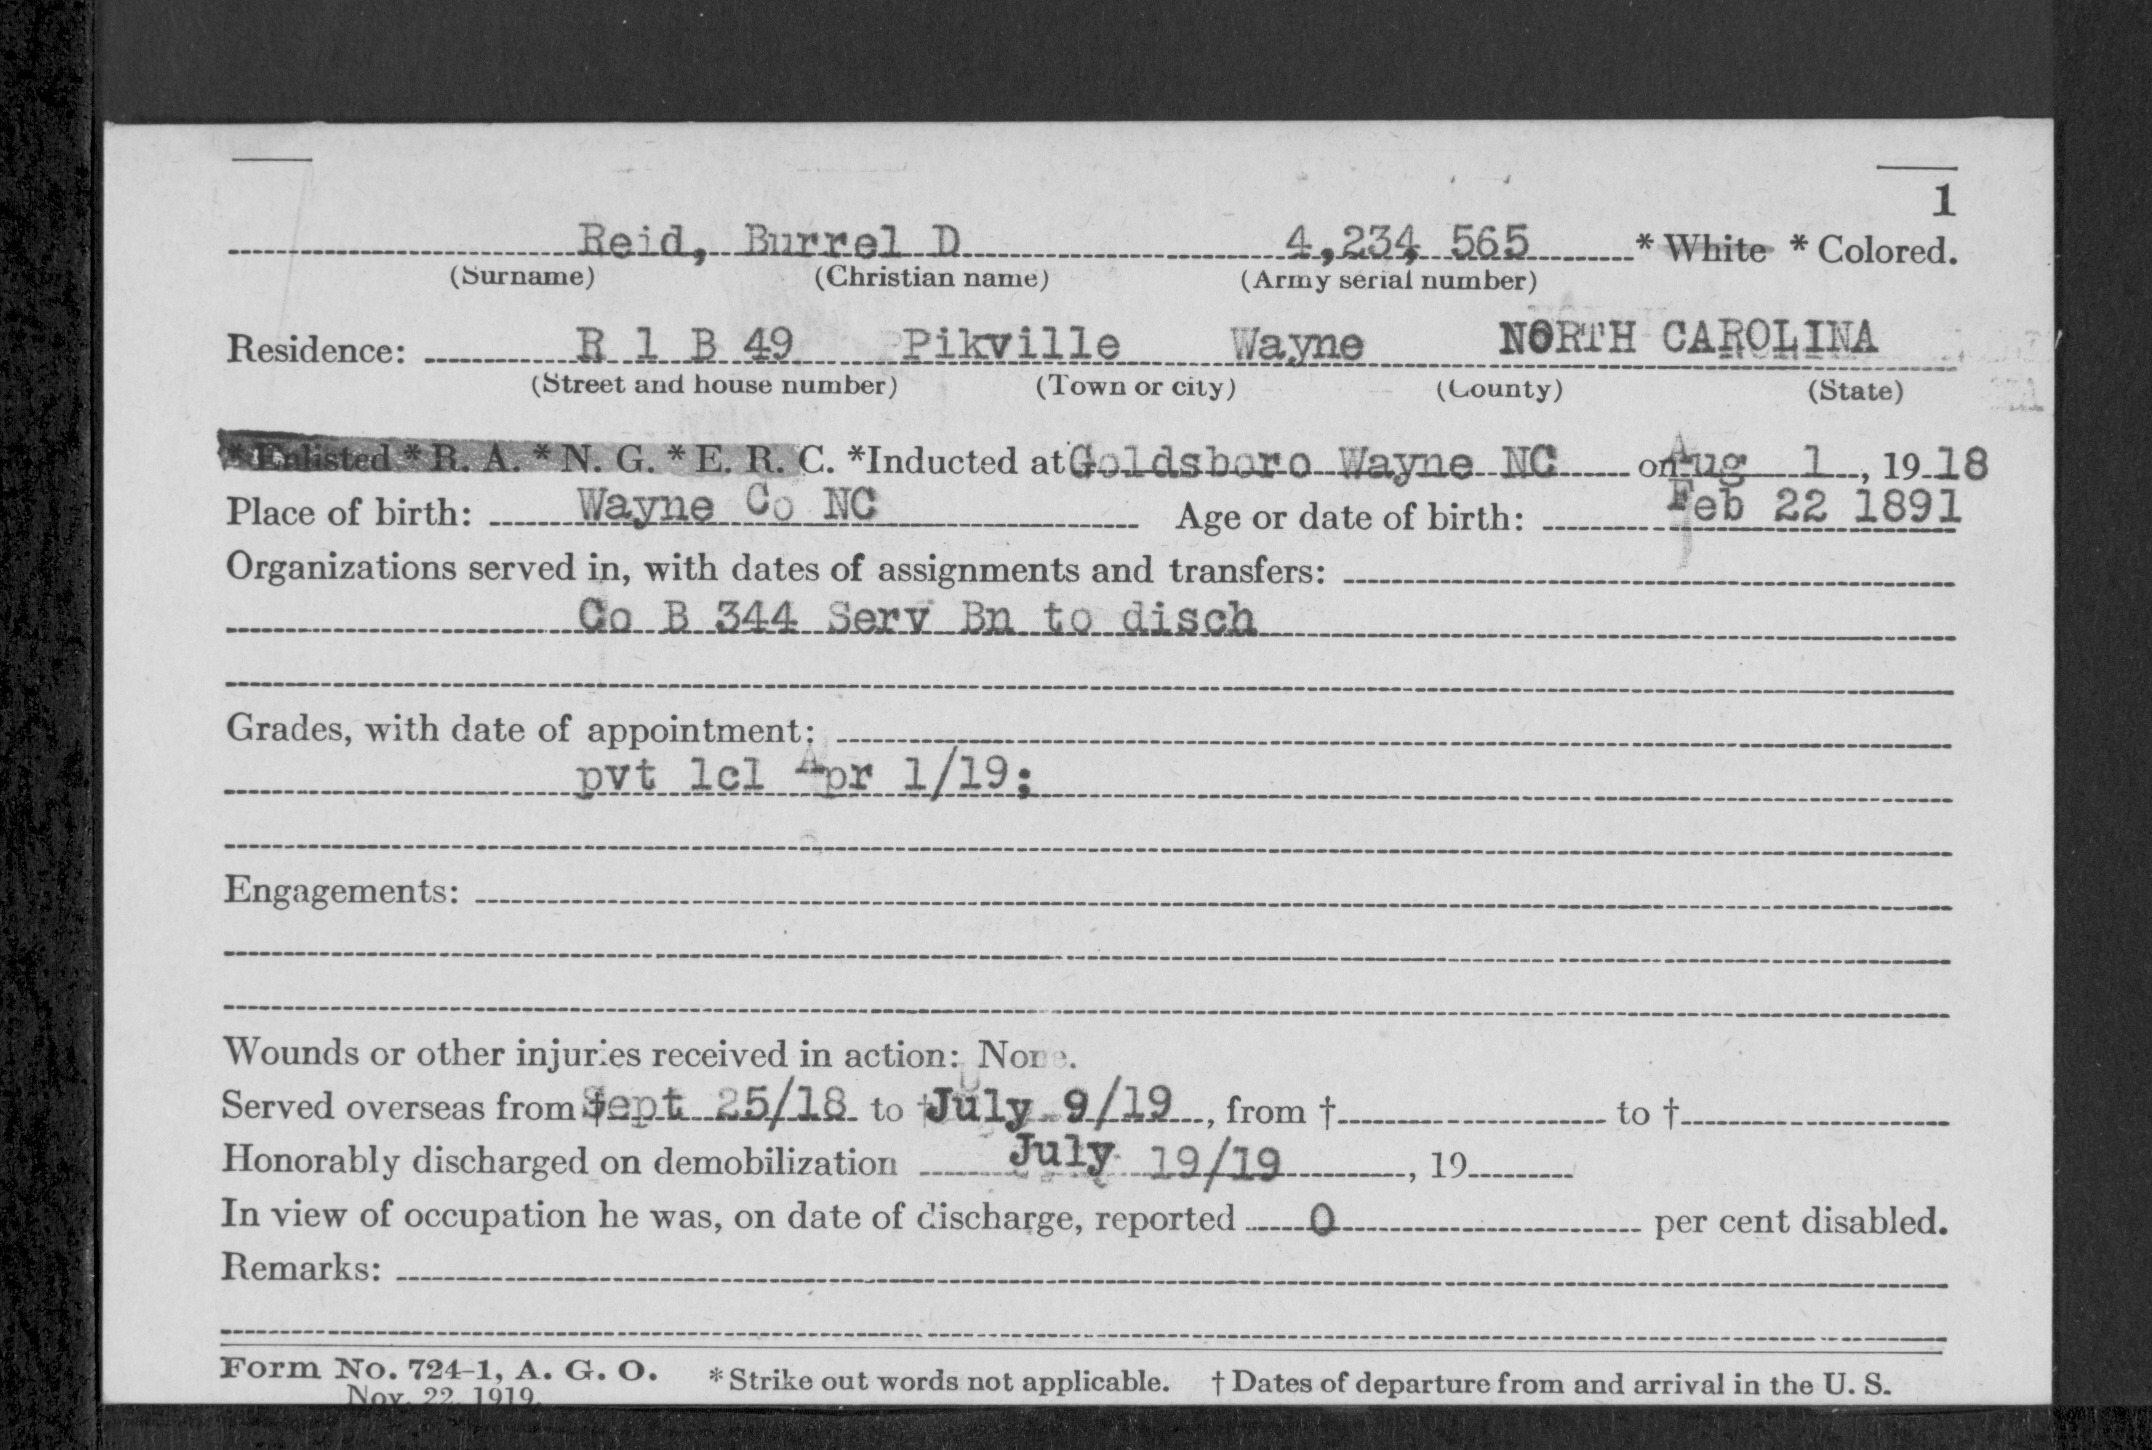 1
Reid, Burrel D 4,234,565 * White * Colored.
(Surname) (Christian name) (Army serial number)
Residence: R 1 B 49 Pikville Wayne NORTH CAROLINA
(Street and house number) (Town or city) (County) (State)
* Enlisted * R. A. * N. G. * E. R. C. *Inducted at Goldsboro Wayne NC on Aug 1, 1918
Place of birth: Wayne Co NC Age or date of birth: Feb 22 1891
Organizations served in, with dates of assignments and transfers:
Co B 344 Serv Bn to disch
Grades, with date of appointment:
pvt 1cl Apr 1/19;
Engagements:
Wounds or other injuries received in action: None.
Served overseas from † Sept 25/18 to † July 9/19, from † to †
Honorably discharged on demobilization July 19/19, 19
In view of occupation he was, on date of discharge, reported 0 per cent disabled.
Remarks:
Form No. 724-1, A. G. O. * Strike out words not applicable. † Dates of departure from and arrival in the U. S.
Nov. 22, 1919.